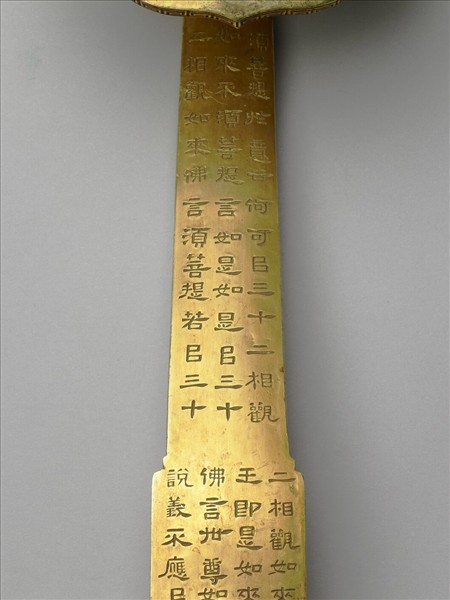 須菩提於意云何可㠯三十二相觀
如來不須菩提言如是如是㠯三十
二相觀如來佛言須菩提若㠯三十
二相觀如來
王即是如來
佛言世尊如
說義不應㠯